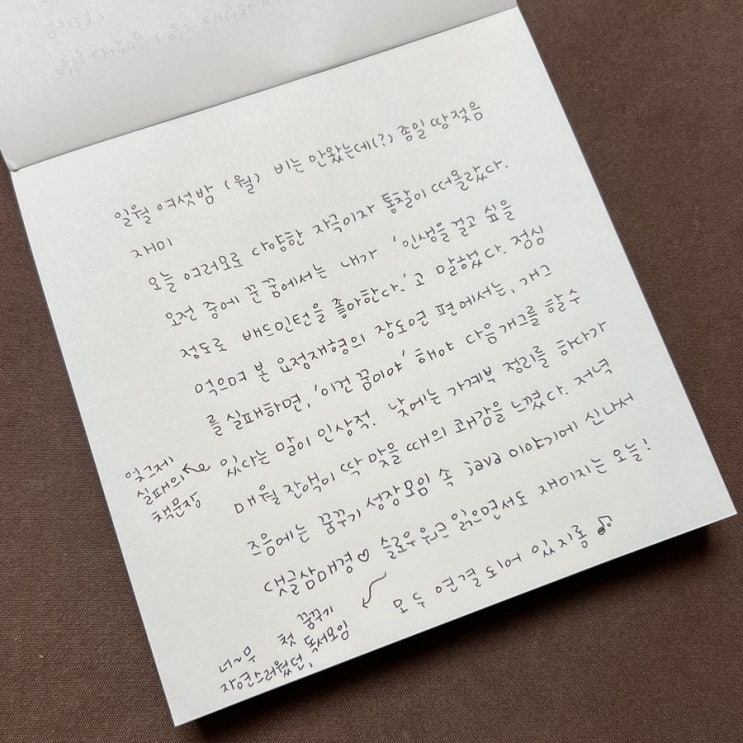 일월 여섯밤 (월) 비는 안왔는데(?) 종일 땅젖음
재미
오늘 여러모로 다양한 자극이자 통찰이 떠올랐다.
오전 중에 꾼 꿈에서는 내가 '인생을 걸고 싶을
정도로 배드민턴을 좋아한다.'고 말했다. 점심
먹으며 본 요정재형의 장도연 편에서는, 개그
를 실패하면, '이건 꿈이야' 해야 다음개그를 할 수
있다는 말이 인상적. 낮에는 가계부 정리를 하다가
엊그제
실패의
책문장
매월 잔액이 딱 맞을 때의 쾌감을 느꼈다. 저녁
즈음에는 꿈꾸기 성장모임 속 java 이야기에 신나서
댓글삼매경♡ 슬로우 워크 읽으면서도 재미지는 오늘!
모두 연결 되어 있지롱 ♫
너~무 첫 꿈꾸기
자연스러웠던, 독서모임